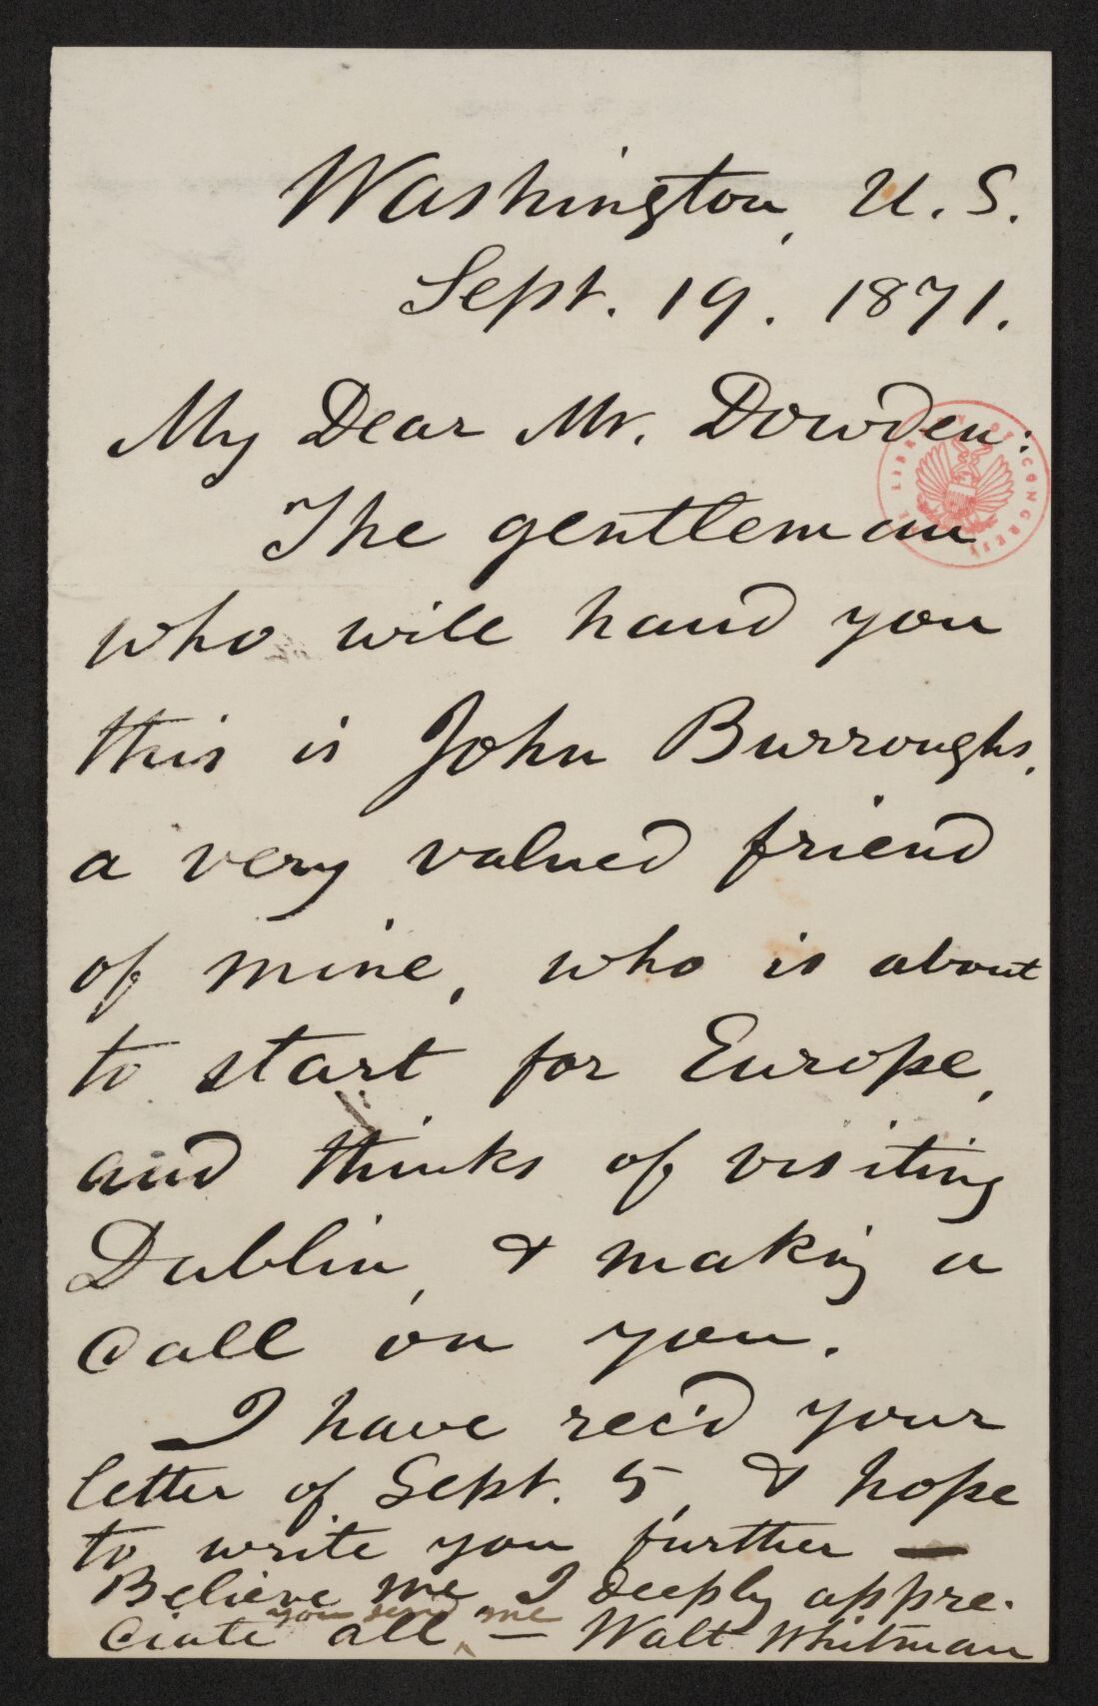 Washington, U.S.
Sept. 19. 1871.
My Dear Mr. Dowden:
LIBRARY OF CONGRESS
The gentleman
who will hand you
this is John Burroughs,
a very valued friend
of mine, who is about
to start for Europe,
and thinks of visiting
Dublin, & making a
call on you.
I have rec'd your
letter of Sept. 5, & hope
to write you further —
Believe me I deeply appre-
you send me
ciate all ^ — Walt Whitman